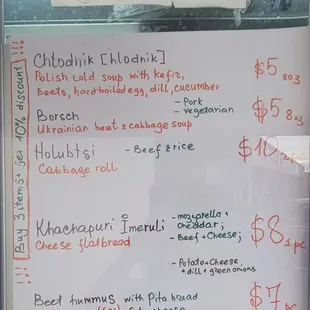 !!! Buy 3 items & get 10% discount !!!
Chłodnik [hłodnik]
Polish cold soup with kefir, $5 8oz
Beets, hard-boiled egg, dill, cucumber
- Pork
- vegetarian $5 8oz
Borsch
Ukrainian beet & cabbage soup
Holubtsi - Beef & rice $10
Cabbage roll
Khachapuri Imeruli - mozzarella + cheddar;
Cheese flatbread - Beef + Cheese; $8 1pc
- Potato + Cheese
+ dill + green onions
Beet hummus with Pita bread $7